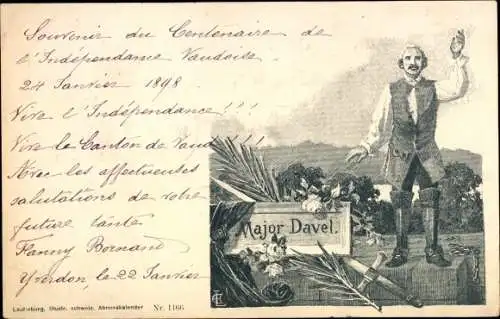 Souvenir du Centenaire de
l'Indépendance Vaudoise.
24 Janvier 1898
Vive l'Indépendance!!!
Vive le Canton de Vaud!!!
Avec les affectueuses
salutations de votre
future tante
Fanny Bornand
Yverdon, le 22 Janvier
Major Davel.
Illustr. schweiz. Abreisskalender Nr. 1166